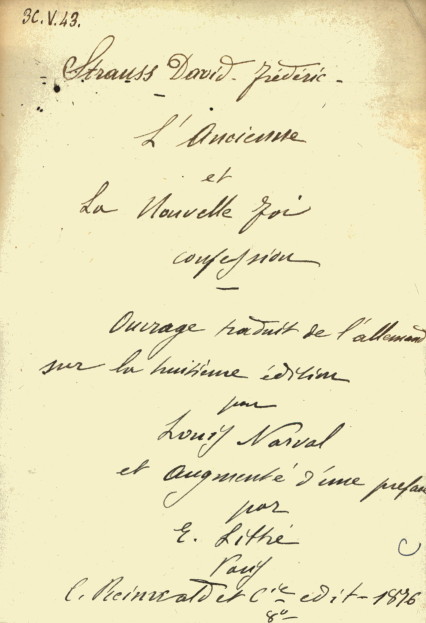 3C.V.43.
- Strauss David-Frédéric -
L'Ancienne
et
La Nouvelle Foi
confession
Ouvrage traduit de l'allemand
sur la huitième édition
par
Louis Narval
et augmenté d'une preface
par
E. Littré
Paris
C. Reinwald et Cie edit - 1876
8º